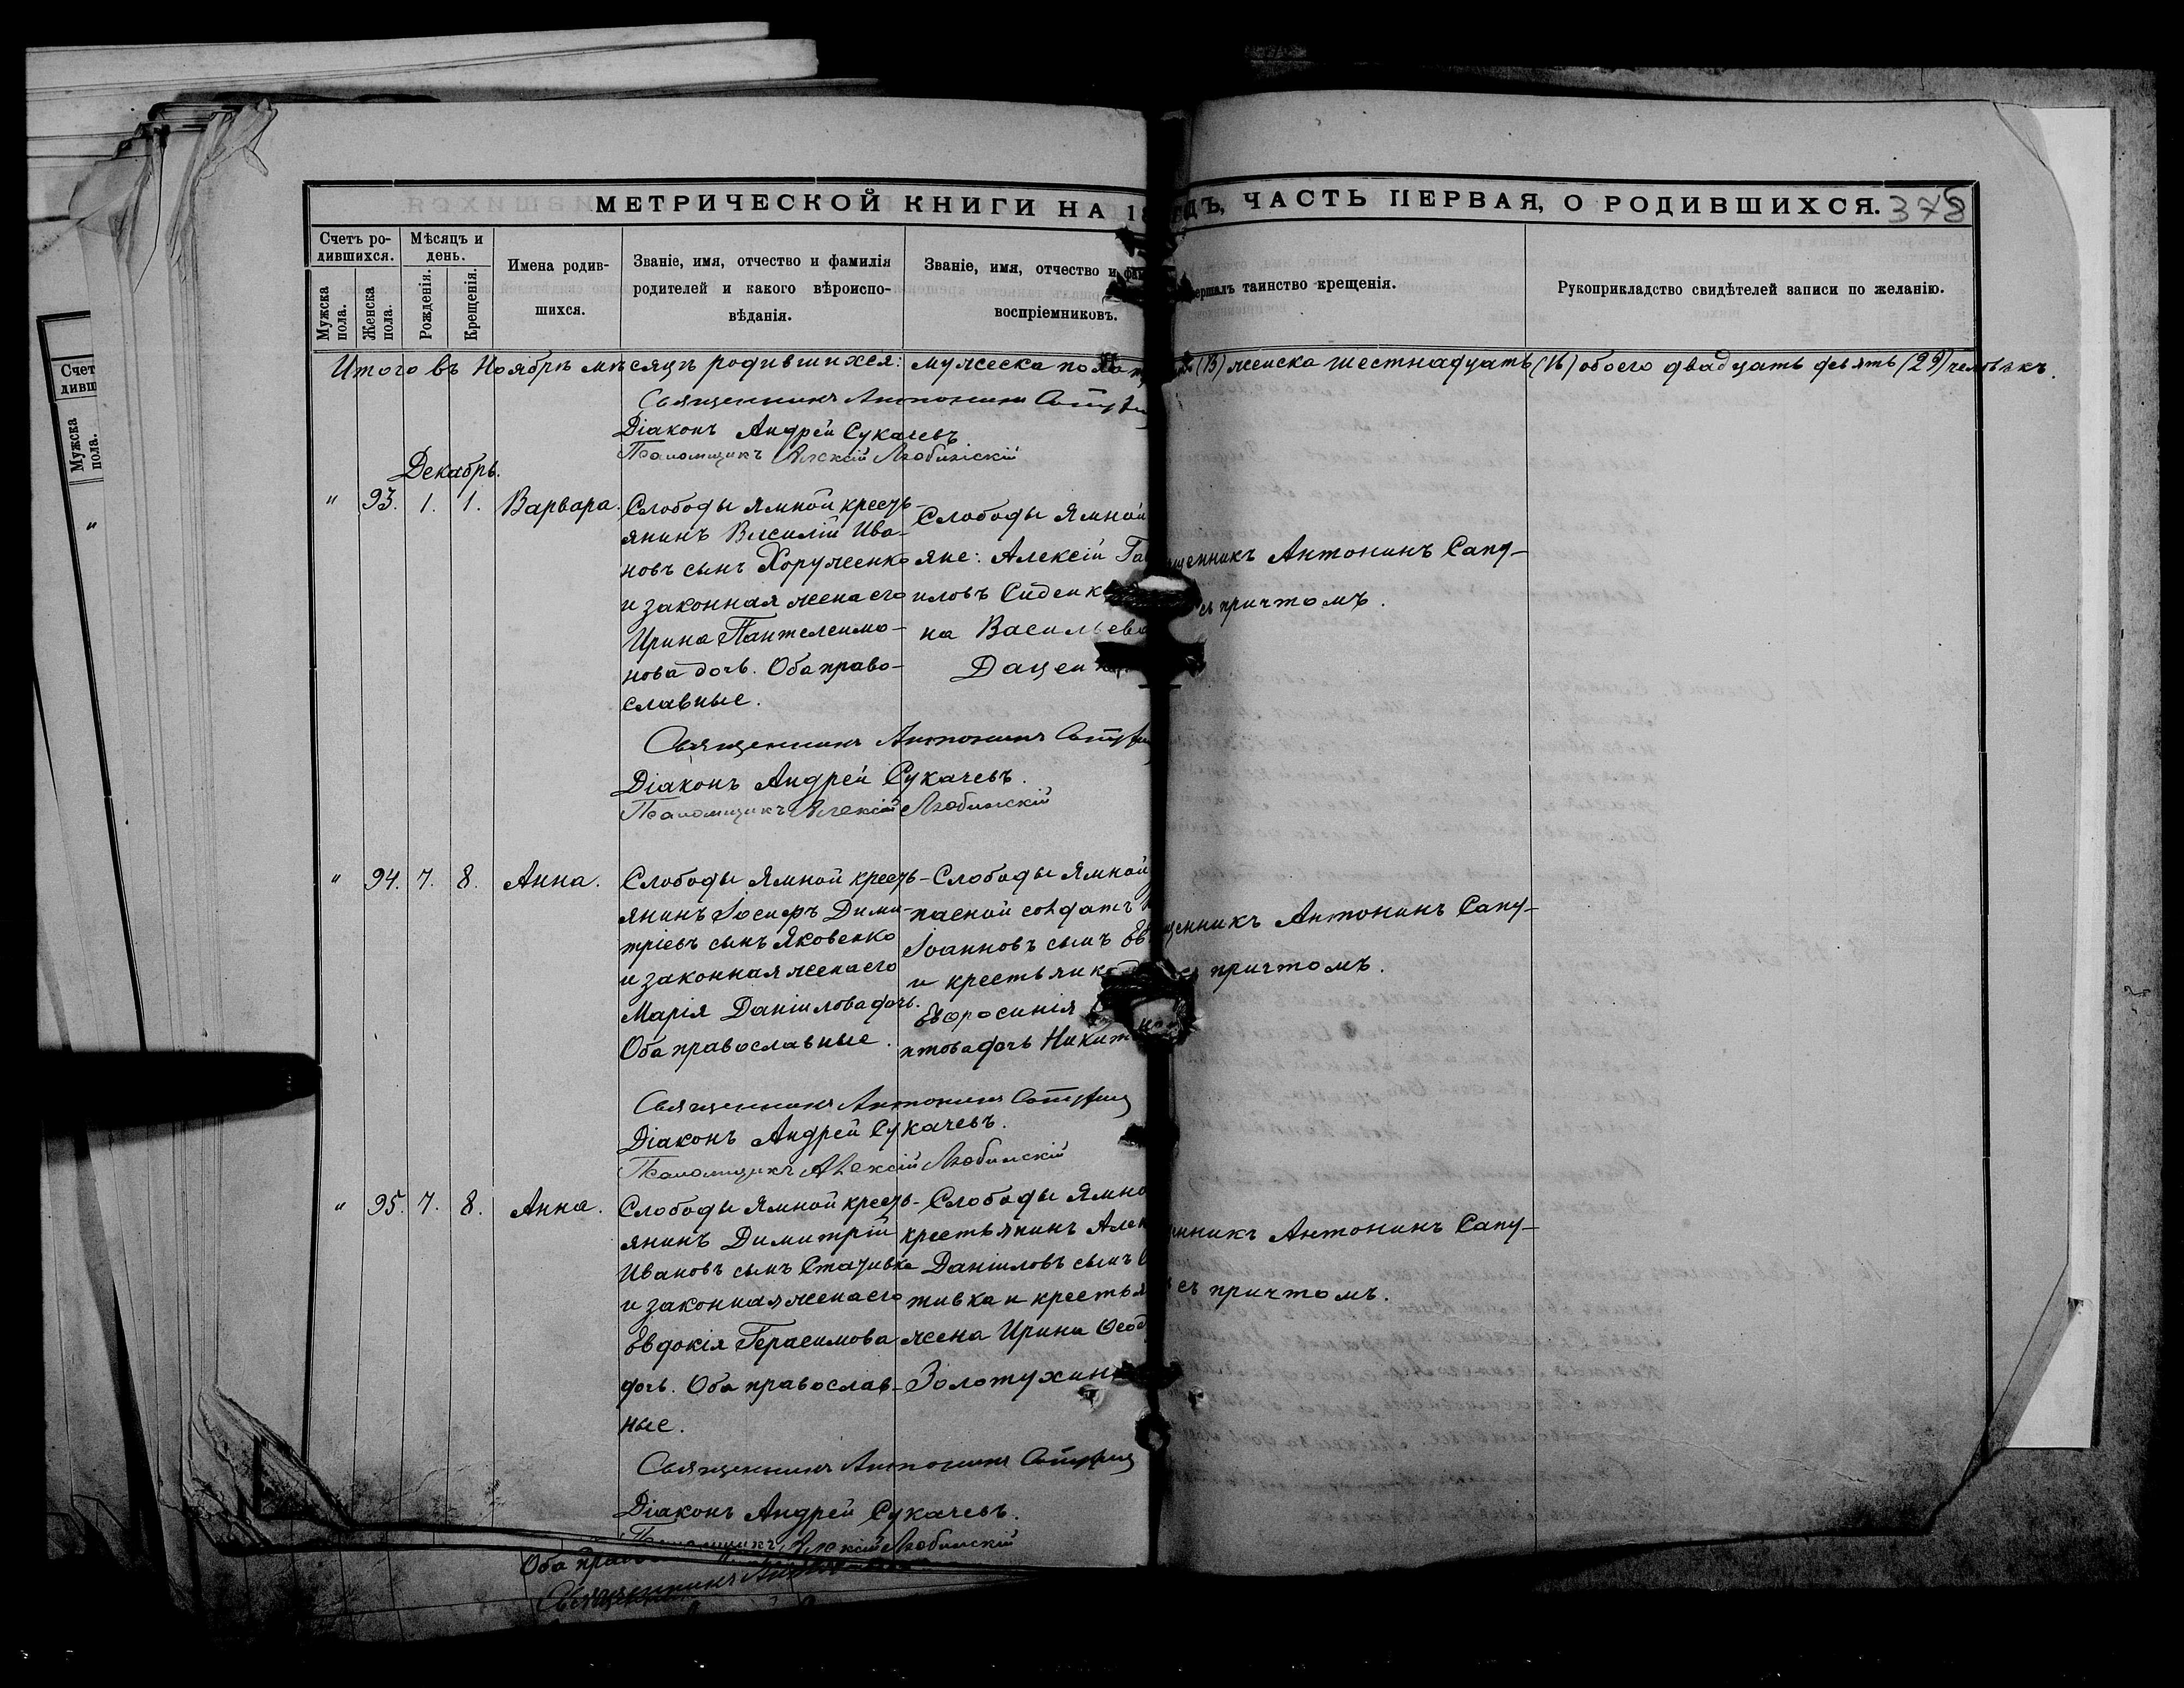 МЕТРИЧЕСКОЙ КНИГИ НА 18
ДЪ, ЧАСТЬ ПЕРВАЯ, О РОДИВШИХСЯ. 378
Счетъ ро-
дившихся.
Мужска
пола.
Женска
пола.
Мѣсяцъ и
день.
Рожденія.
Крещенія.
Имена родив-
шихся.
Званіе, имя, отчество и фамилія
родителей и какого вѣроиспо-
вѣданія.
Званіе, имя, отчество и
воспріемниковъ.
таинство крещенія.
Рукоприкладство свидѣтелей записи по желанію.
Итого въ Ноябрѣ мѣсяцѣ родившихся: мужеска пола (13) женска шестнадцать (16) обоего двадцать девять (29) человѣкъ.
Священникъ Антонинъ
Діаконъ Андрей Сукачевъ
Псаломщикъ Алексій Любинскій
Декабрь.
" 93. 1. 1. Варвара.
Слободы Ямной кресть-
янинъ Василій Ива-
новъ сынъ Хорученко
и законная жена его
Ирина Пантелеимо-
нова дочь. Оба право-
славные.
Слободы Ямной
яне: Алексій Га
иловъ Сиденк
на Васильева
Даценк
щенникъ Антонинъ Сапу-
съ причтомъ.
Священникъ Антонинъ
Діаконъ Андрей Сукачевъ.
Псаломщикъ Алексій Любинскій
" 94. 7. 8. Анна.
Слободы Ямной кресть-
янинъ Іосифъ Дими-
тріевъ сынъ Яковенко
и законная жена его
Марія Даніилова дочь.
Оба православные.
Слободы Ямной
пасной солдатъ
Іоанновъ сынъ Ев
и крестьянк
Евфросинія
птова дочь Никит
щенникъ Антонинъ Сапу-
съ причтомъ.
Священникъ Антонинъ
Діаконъ Андрей Сукачевъ.
Псаломщикъ Алексій Любинскій
" 95. 7. 8. Анна.
Слободы Ямной кресть-
янинъ Димитрій
Ивановъ сынъ Стативка
и законная жена его
Евдокія Герасимова
дочь. Оба православ-
ные.
Слободы Ямно
крестьянинъ Алек
Даніиловъ сынъ С
тивка и крестья
жена Ирина Ѳеод
Золотухин
нникъ Антонинъ Сапу-
съ причтомъ.
Священникъ Антонинъ
Діаконъ Андрей Сукачевъ.
Псаломщикъ Алексій Любинскій
Оба
Священникъ
Счет
дивш
Мужска
пола.
"